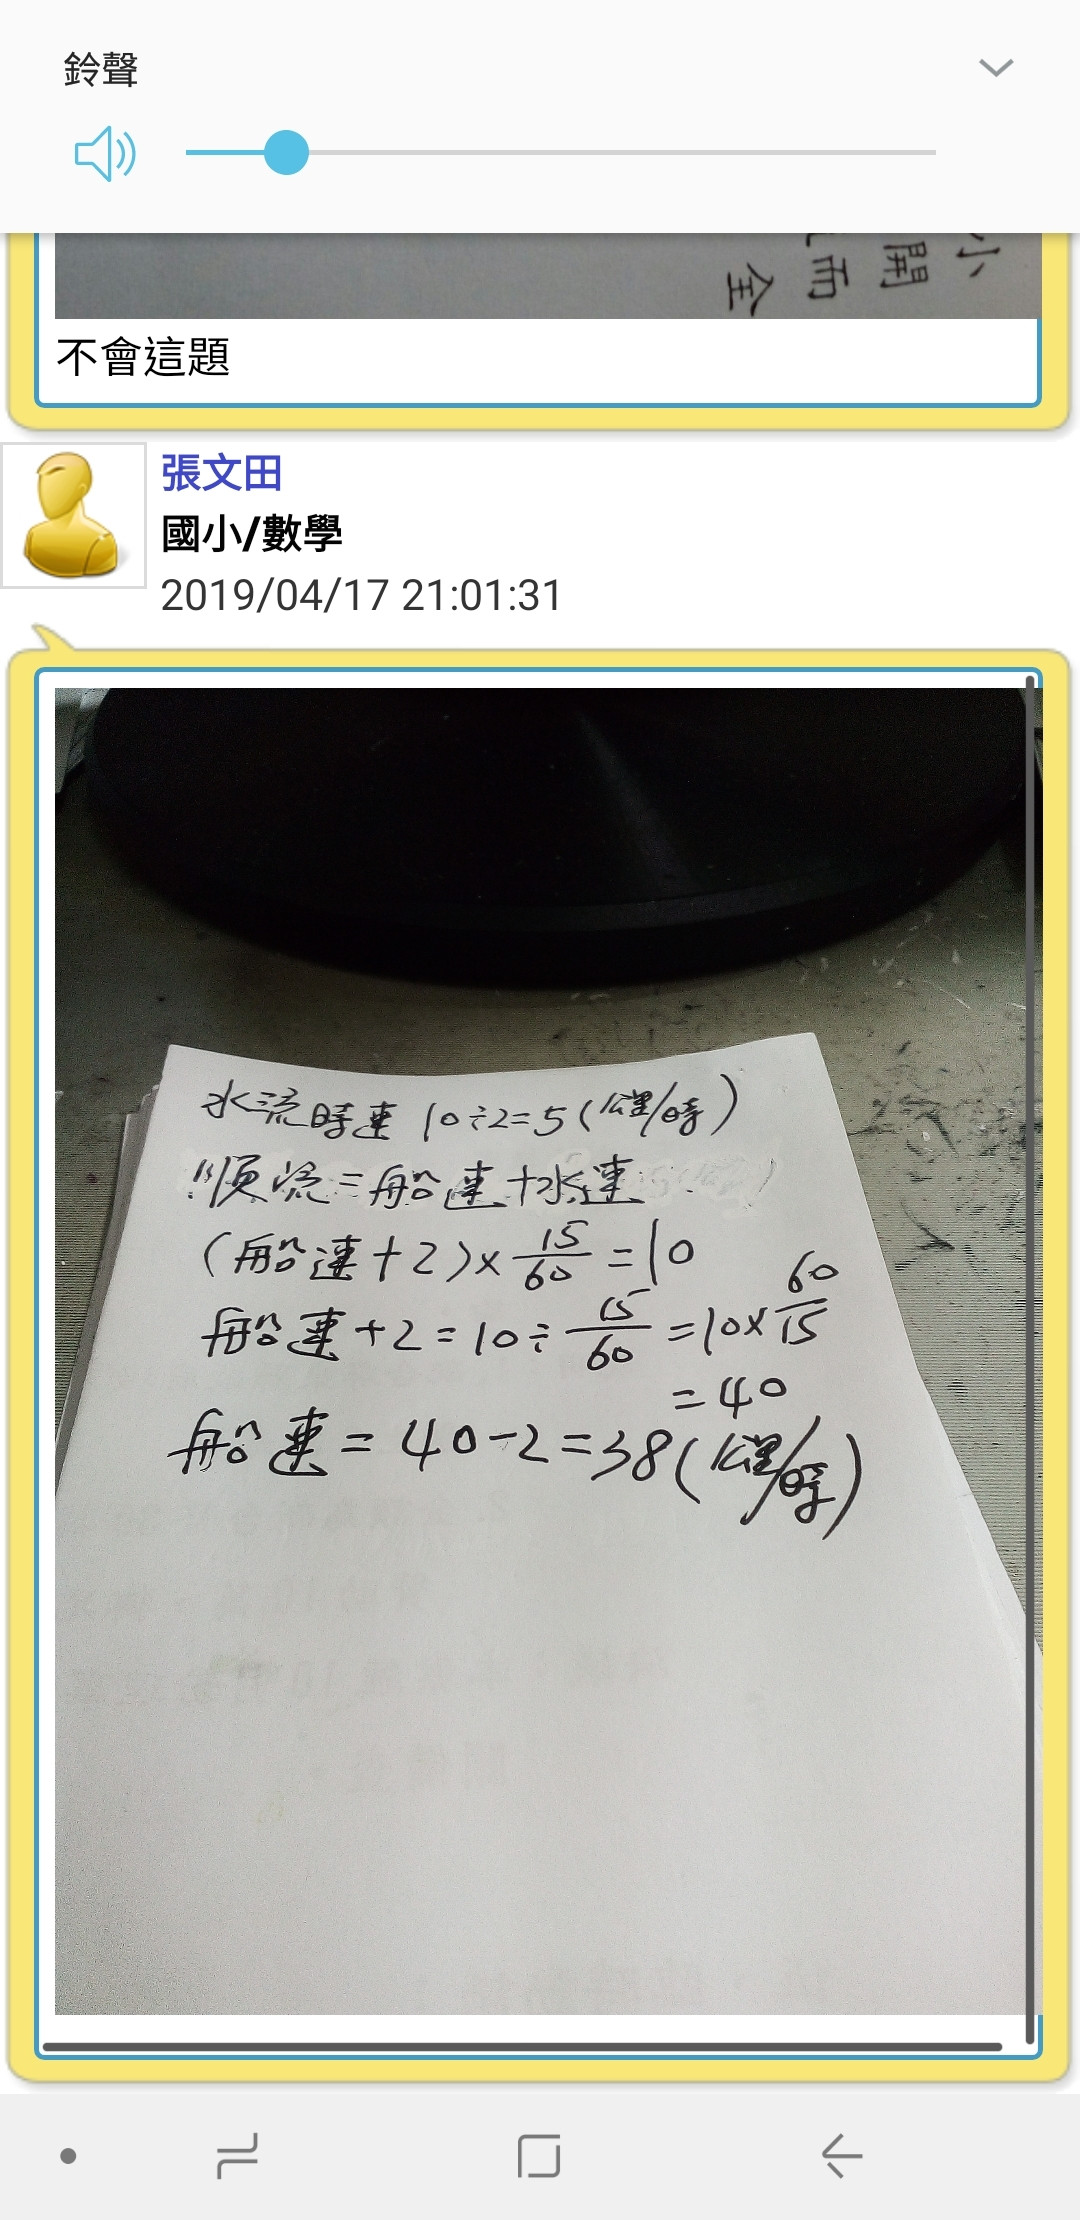 鈴聲
小
開
而
全
不會這題
張文田
國小/數學
2019/04/17 21:01:31
水流時速 10÷2=5(公里/時)
順流=船速+水速
(船速+2)×15/60=10
船速+2=10÷15/60=10×60/15
=40
船速=40-2=38(公里/時)